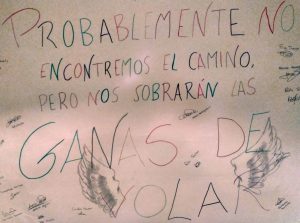 PROBABLEMENTE NO
ENCONTREMOS EL CAMINO,
PERO NOS SOBRARÁN LAS
GANAS DE
VOLAR